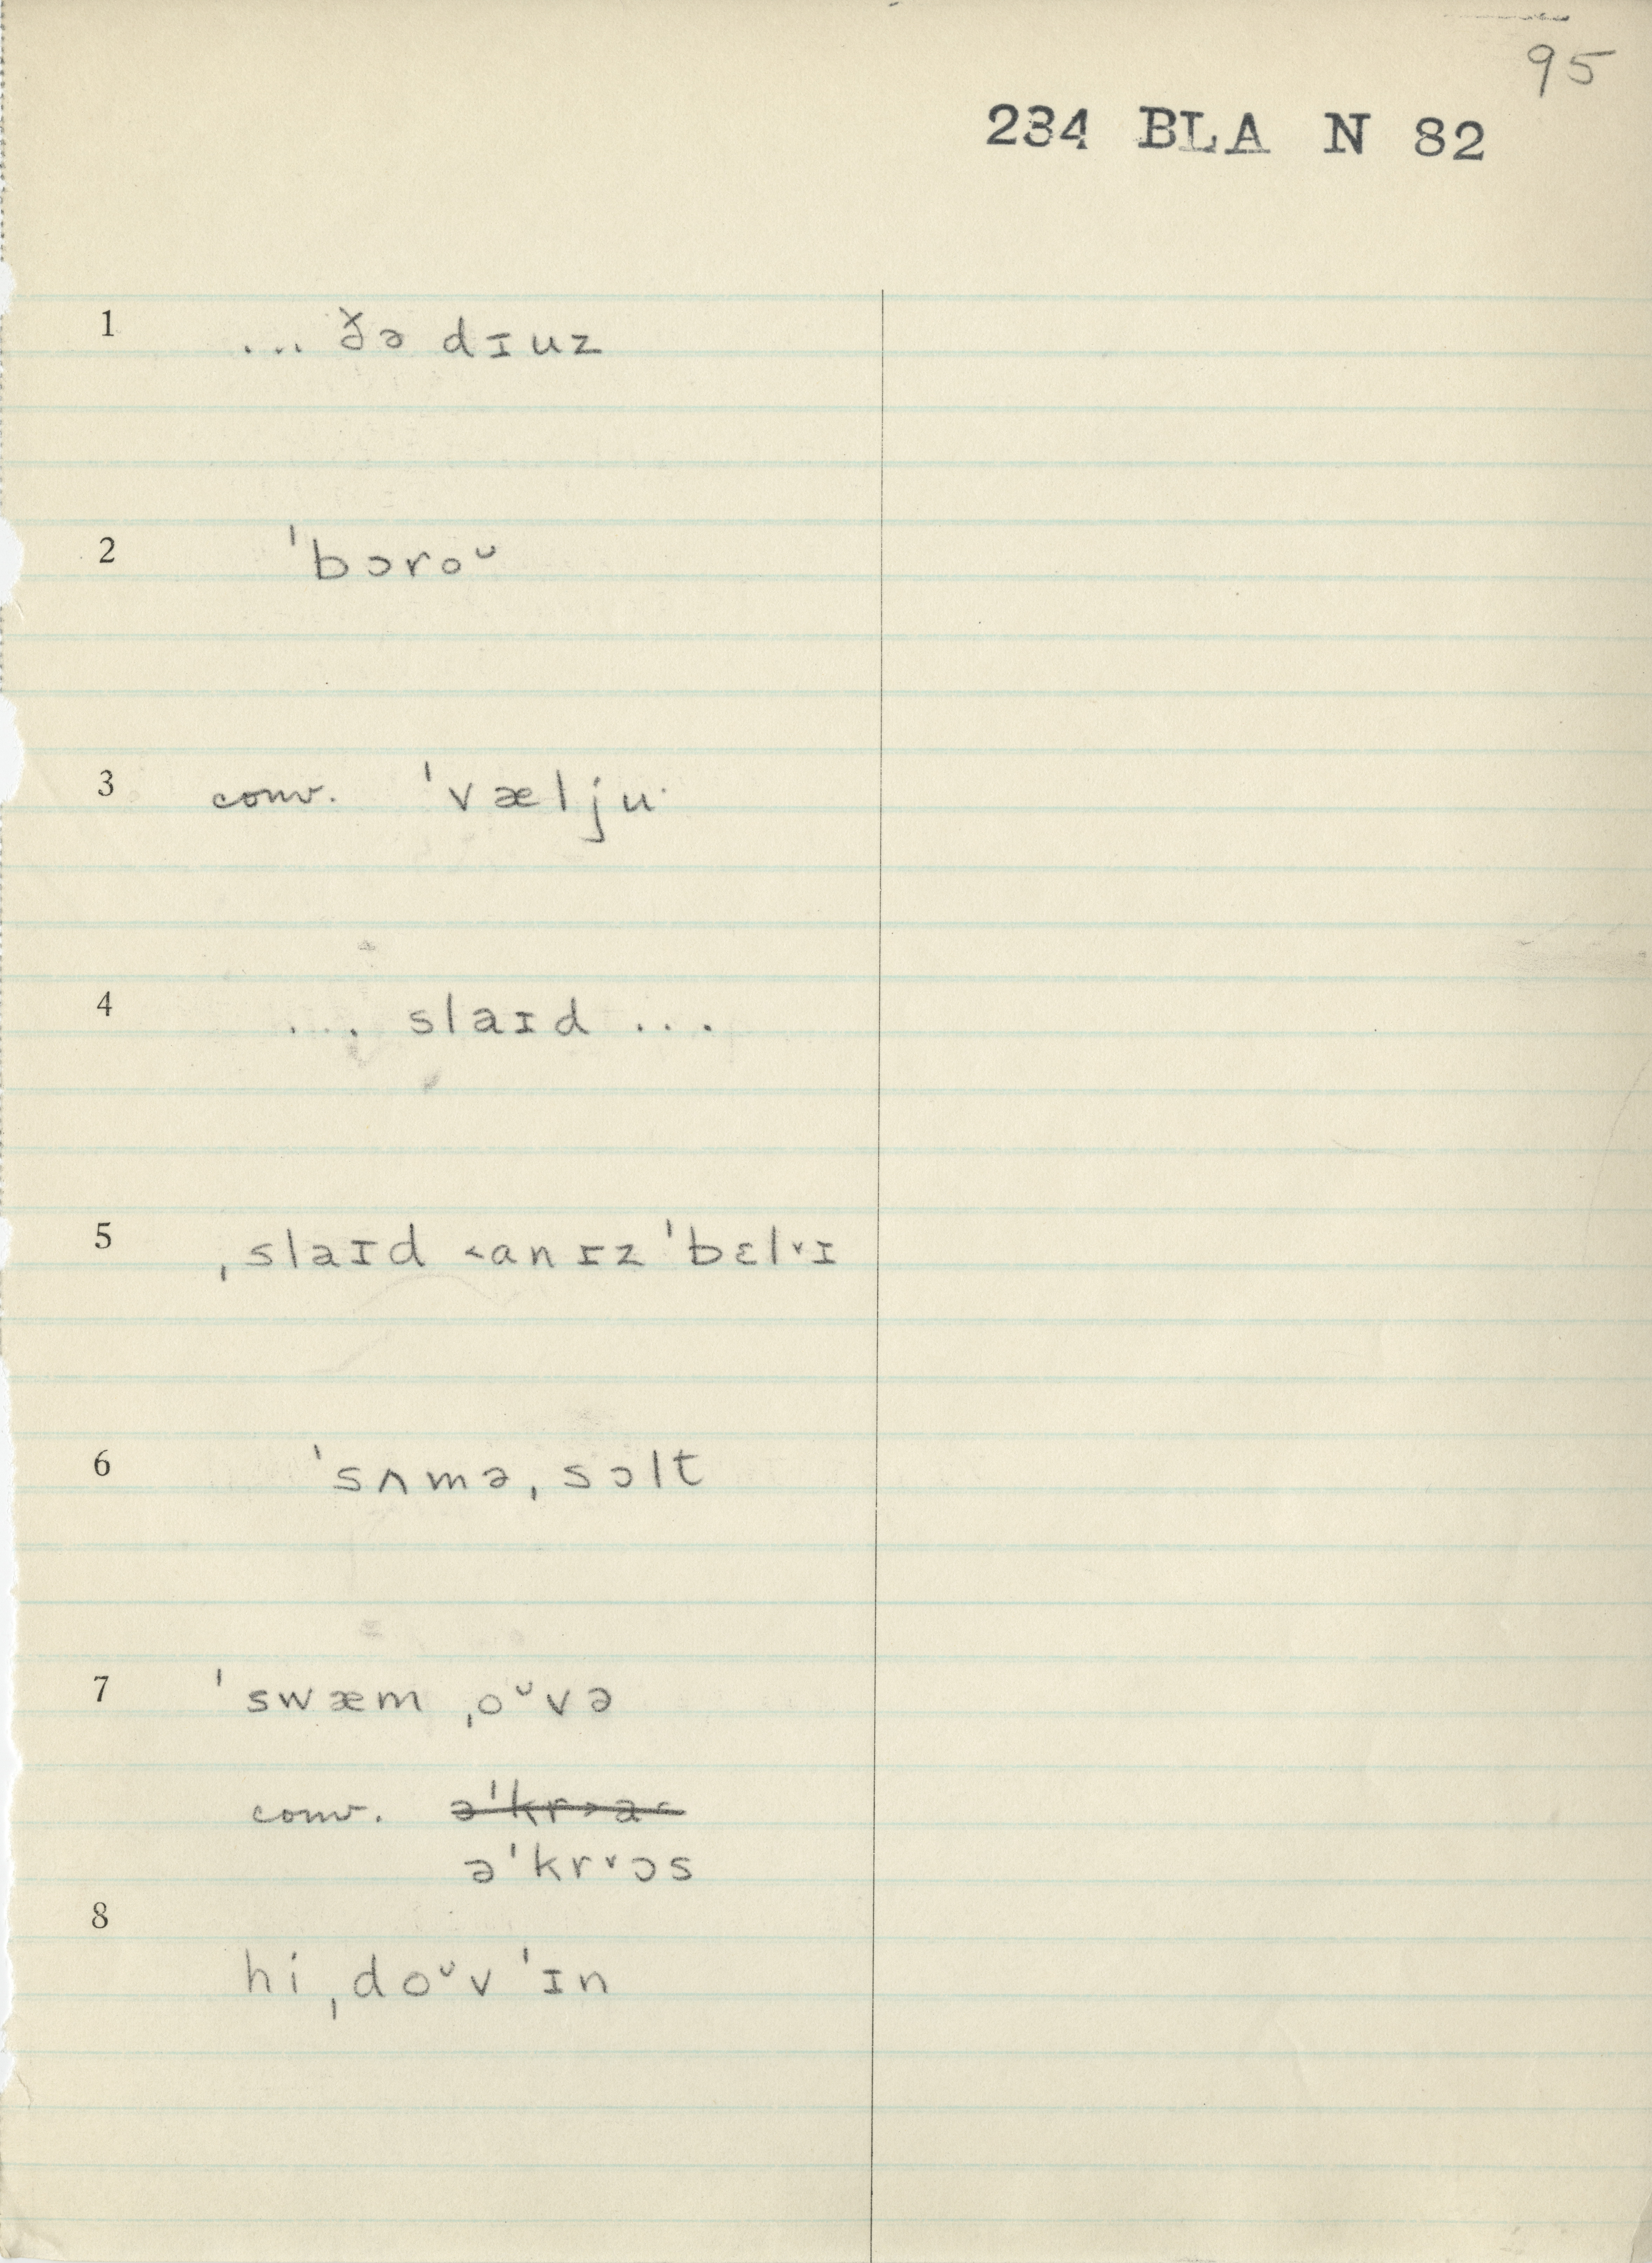 95
234 BLA N 82
1 ... ðə dɪuz
2 ˈbɔroᵕ
3 conv. ˈvæljuˑ
4 ... slaɪd ...
5 ˌslaɪd ˂anɪz ˈbɛl˅ɪ
6 ˈsʌməˌsɔlt
7 ˈswæm ˌoᵕvə
conv.
əˈkr˅ɔs
8
hi ˌdoᵕv ˈɪn